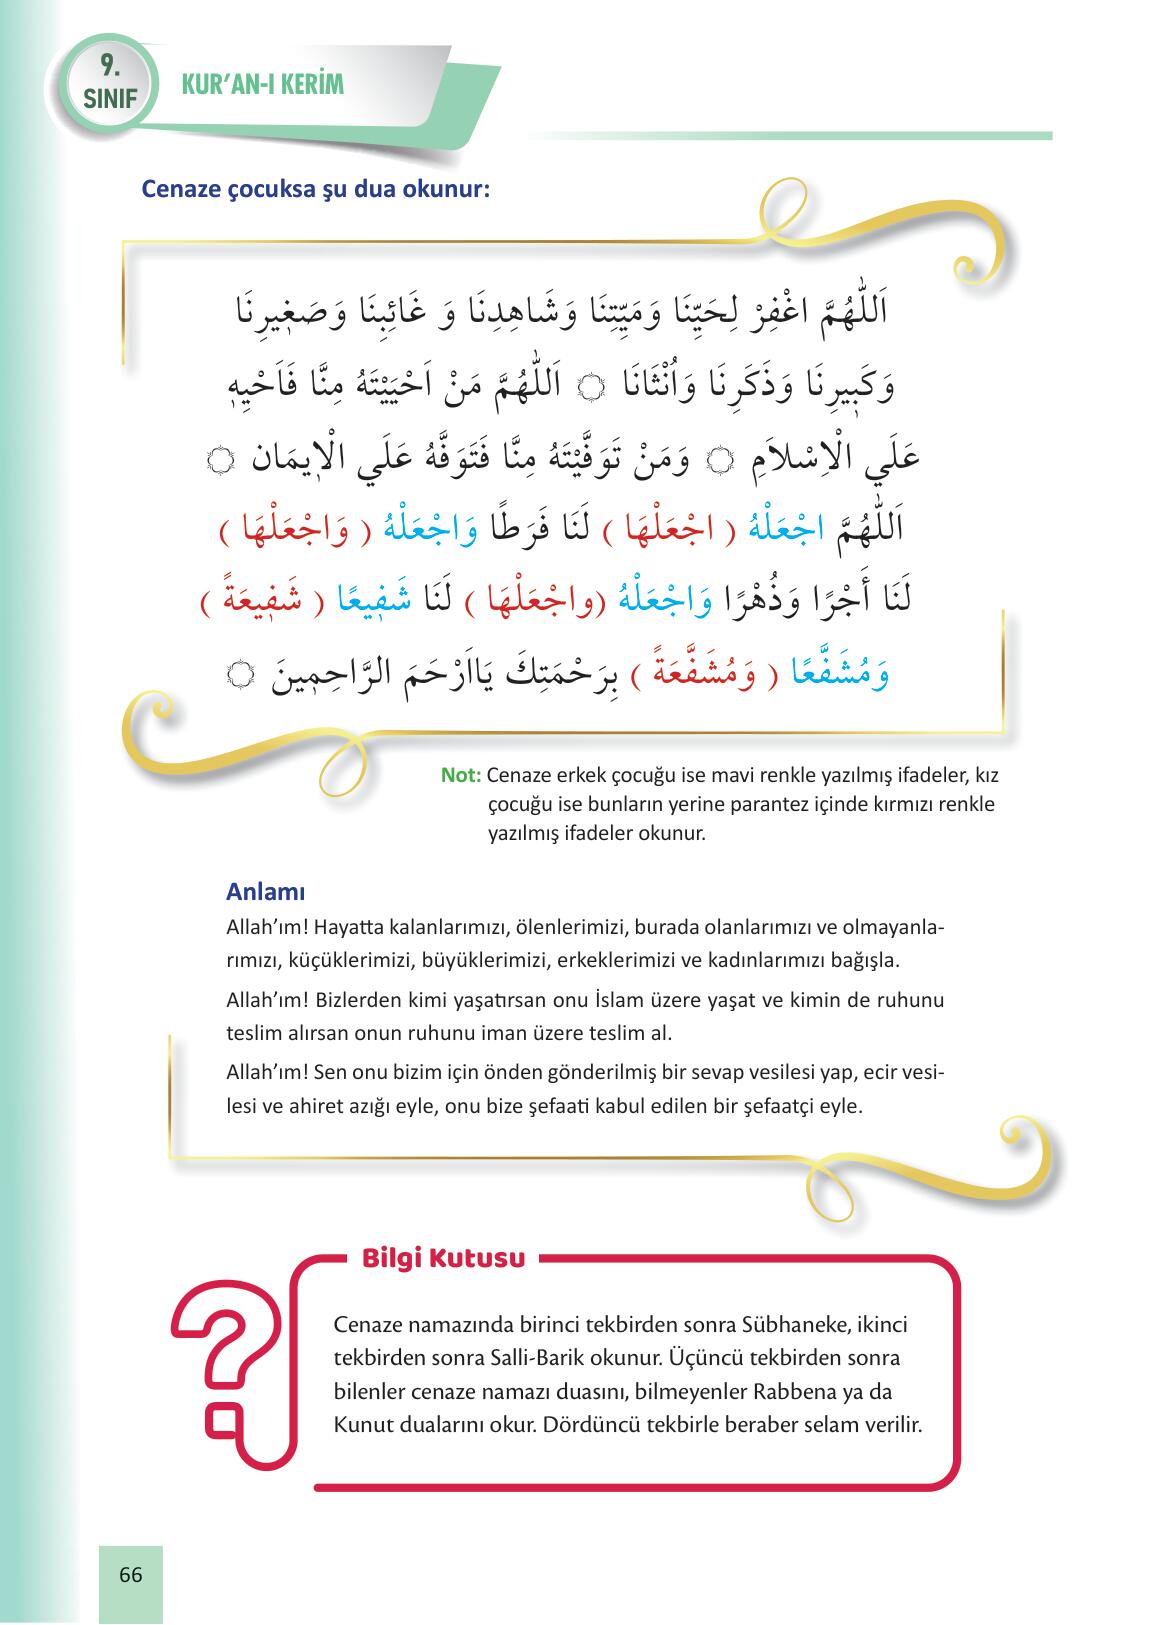 9.
SINIF
KUR’AN-I KERİM
Cenaze çocuksa şu dua okunur:
اَللّٰهُمَّ اغْفِرْ لِحَيِّنَا وَمَيِّتِنَا وَشَاهِدِنَا وَ غَائِبِنَا وَصَغ۪يرِنَا
وَكَب۪يرِنَا وَذَكَرِنَا وَاُنْثَانَا ۝ اَللّٰهُمَّ مَنْ اَحْيَيْتَهُ مِنَّا فَاَحْيِه۪
عَلَي الْاِسْلاَمِ ۝ وَمَنْ تَوَفَّيْتَهُ مِنَّا فَتَوَفَّهُ عَلَي الْا۪يمَان ۝
اَللّٰهُمَّ اجْعَلْهُ ( اجْعَلْهَا ) لَنَا فَرَطًا وَاجْعَلْهُ ( وَاجْعَلْهَا )
لَنَا أَجْرًا وَذُهْرًا وَاجْعَلْهُ (واجْعَلْهَا ) لَنَا شَف۪يعًا ( شَف۪يعَةً )
وَمُشَفَّعًا ( وَمُشَفَّعَةً ) بِرَحْمَتِكَ يَااَرْحَمَ الرَّاحِم۪ينَ ۝
Not: Cenaze erkek çocuğu ise mavi renkle yazılmış ifadeler, kız
çocuğu ise bunların yerine parantez içinde kırmızı renkle
yazılmış ifadeler okunur.
Anlamı
Allah’ım! Hayatta kalanlarımızı, ölenlerimizi, burada olanlarımızı ve olmayanla-
rımızı, küçüklerimizi, büyüklerimizi, erkeklerimizi ve kadınlarımızı bağışla.
Allah’ım! Bizlerden kimi yaşatırsan onu İslam üzere yaşat ve kimin de ruhunu
teslim alırsan onun ruhunu iman üzere teslim al.
Allah’ım! Sen onu bizim için önden gönderilmiş bir sevap vesilesi yap, ecir vesi-
lesi ve ahiret azığı eyle, onu bize şefaati kabul edilen bir şefaatçi eyle.
Bilgi Kutusu
Cenaze namazında birinci tekbirden sonra Sübhaneke, ikinci
tekbirden sonra Salli-Barik okunur. Üçüncü tekbirden sonra
bilenler cenaze namazı duasını, bilmeyenler Rabbena ya da
Kunut dualarını okur. Dördüncü tekbirle beraber selam verilir.
66